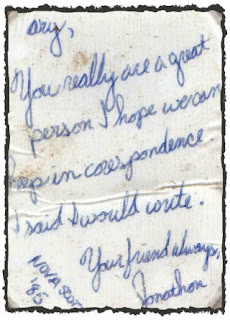 ary,
You really are a great
person I hope we can
eep in corespondence.
I said I would write.
Your friend always,
Jonathon
NOVA SCOT
'85